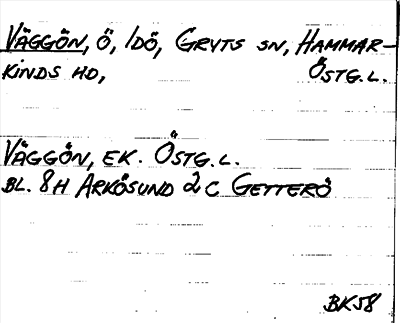 VÄGGÖN, Ö, IDÖ, GRYTS SN, HAMMAR-
KINDS HD, ÖSTG.L.
VÄGGÖN, EK. ÖSTG.L.
BL. 8H ARKÖSUND 2C GETTERÖ
BK58